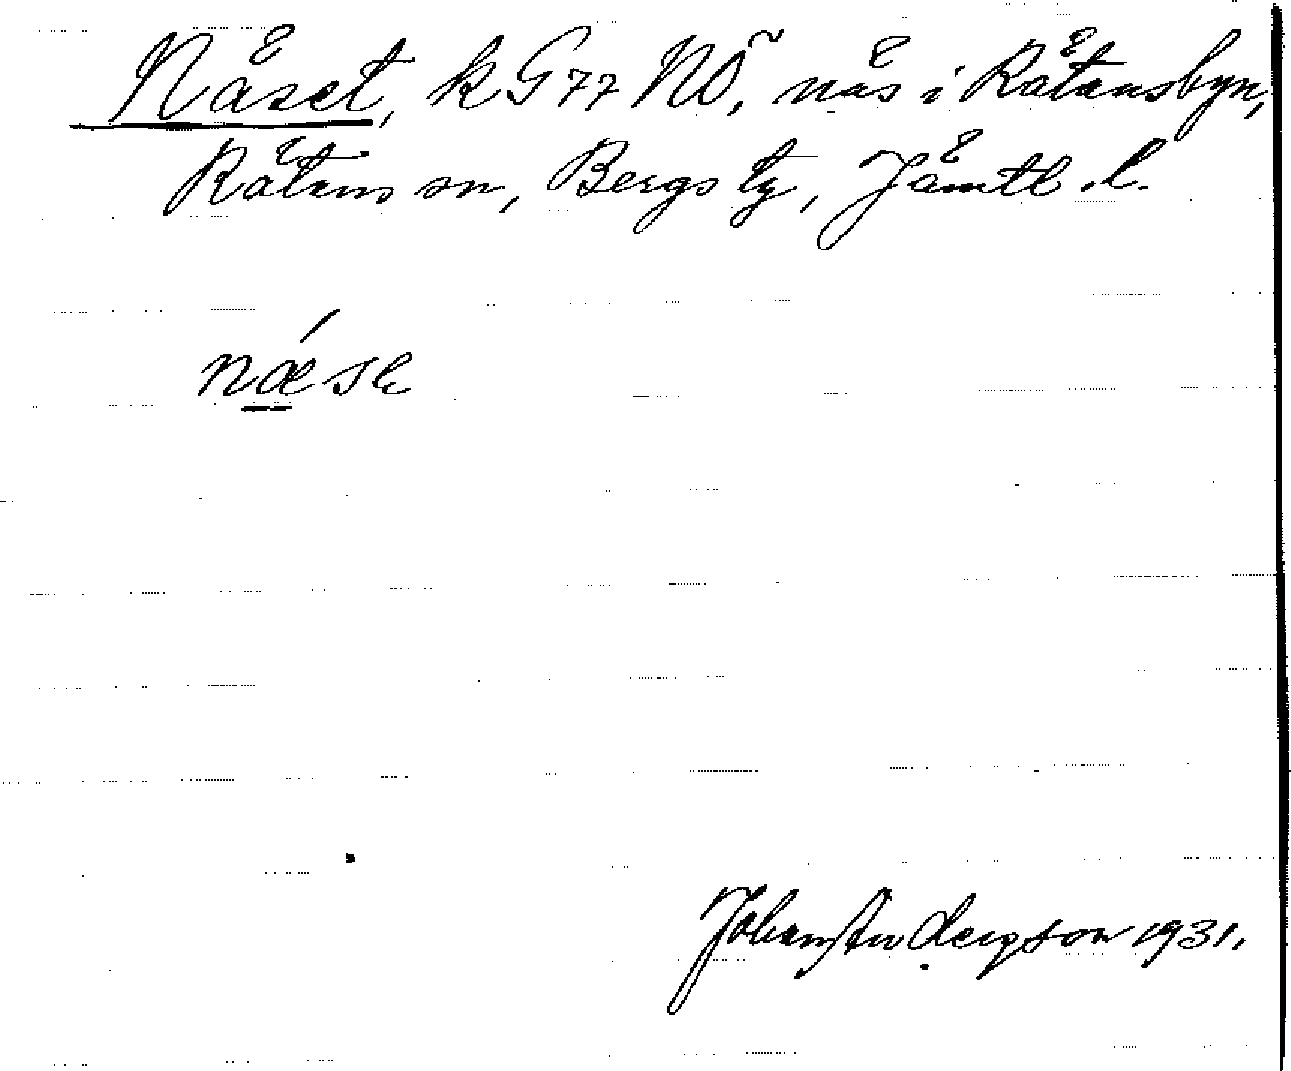 Näset, k G 77 NÖ, näs i Rätansbyn,
Rätans sn, Bergs tg, Jämtl. l.
næ´se
Johan Andersson 1931.